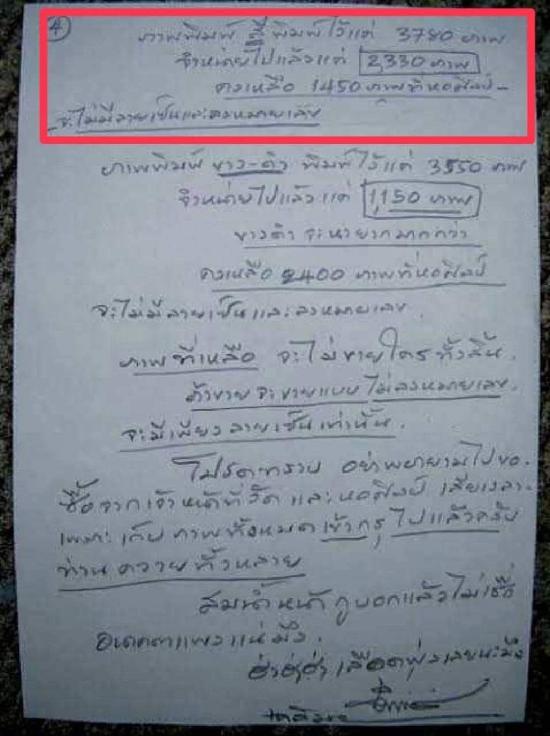 4
ภาพพิมพ์ สี พิมพ์ไว้แค่ 3780 ภาพ
จำหน่ายไปแล้วแค่ 2,330 ภาพ
คงเหลือ 1450 ภาพที่หอศิลป์
จะไม่มีลายเซ็นและลงหมายเลข
ภาพพิมพ์ ขาว-ดำ พิมพ์ไว้แค่ 3550 ภาพ
จำหน่ายไปแล้วแค่ 1,150 ภาพ
ขาวดำ จะหายากมากกว่า
คงเหลือ 2400 ภาพที่หอศิลป์
จะไม่มีลายเซ็นและลงหมายเลข
ภาพที่เหลือ จะไม่ขายใครทั้งสิ้น.
ถ้าขายจะขายแบบ ไม่ลงหมายเลข.
จะมีเพียงลายเซ็นเท่านั้น.
โปรดทราบ อย่าพยายามไปขอ
ซื้อจากเจ้าหน้าที่วัด และหอศิลป์ เสียเวลา
เพราะ เก็บภาพทั้งหมด เข้ากรุ ไปแล้วครับ
ท่าน ควาย ทั้งหลาย
สมน้ำหน้า กูบอกแล้วไม่เชื่อ
อนาคตแพงแน่มึง.
ฮ่าฮ่าฮ่า เลือดพุ่งเลยนะมึง